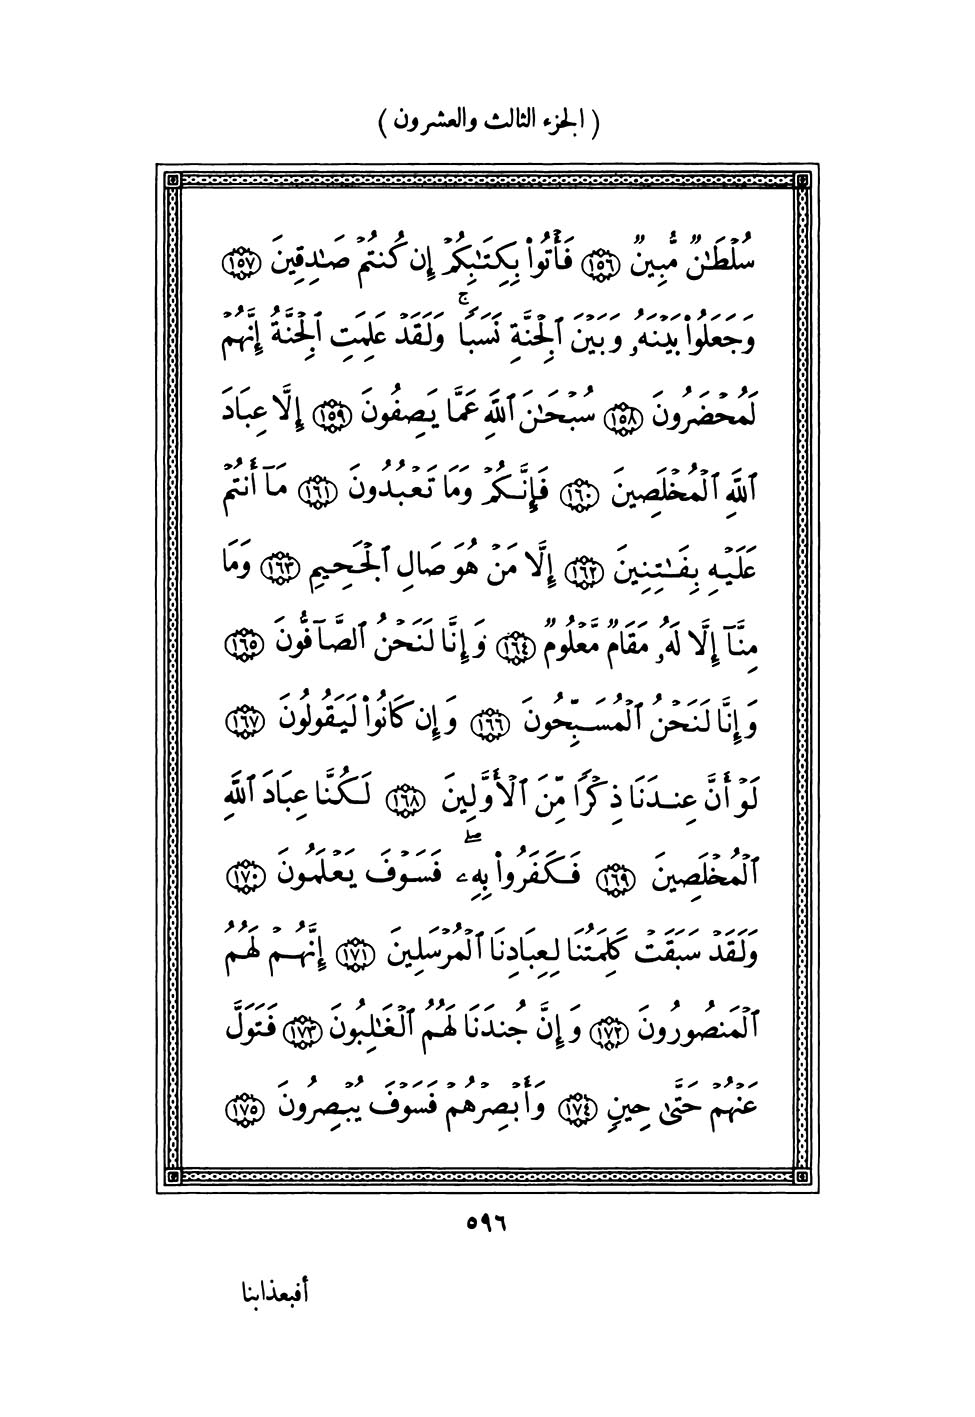 ( الجزء الثالث والعشرون )
سُلْطَٰنٌ مُّبِينٌ ١٥٦ فَأْتُوا۟ بِكِتَٰبِكُمْ إِن كُنتُمْ صَٰدِقِينَ ١٥٧
وَجَعَلُوا۟ بَيْنَهُۥ وَبَيْنَ ٱلْجِنَّةِ نَسَبًا ۚ وَلَقَدْ عَلِمَتِ ٱلْجِنَّةُ إِنَّهُمْ
لَمُحْضَرُونَ ١٥٨ سُبْحَٰنَ ٱللَّهِ عَمَّا يَصِفُونَ ١٥٩ إِلَّا عِبَادَ
ٱللَّهِ ٱلْمُخْلَصِينَ ١٦٠ فَإِنَّكُمْ وَمَا تَعْبُدُونَ ١٦١ مَآ أَنتُمْ
عَلَيْهِ بِفَٰتِنِينَ ١٦٢ إِلَّا مَنْ هُوَ صَالِ ٱلْجَحِيمِ ١٦٣ وَمَا
مِنَّآ إِلَّا لَهُۥ مَقَامٌ مَّعْلُومٌ ١٦٤ وَإِنَّا لَنَحْنُ ٱلصَّآفُّونَ ١٦٥
وَإِنَّا لَنَحْنُ ٱلْمُسَبِّحُونَ ١٦٦ وَإِن كَانُوا۟ لَيَقُولُونَ ١٦٧
لَوْ أَنَّ عِندَنَا ذِكْرًا مِّنَ ٱلْأَوَّلِينَ ١٦٨ لَكُنَّا عِبَادَ ٱللَّهِ
ٱلْمُخْلَصِينَ ١٦٩ فَكَفَرُوا۟ بِهِۦ ۖ فَسَوْفَ يَعْلَمُونَ ١٧٠
وَلَقَدْ سَبَقَتْ كَلِمَتُنَا لِعِبَادِنَا ٱلْمُرْسَلِينَ ١٧١ إِنَّهُمْ لَهُمُ
ٱلْمَنصُورُونَ ١٧٢ وَإِنَّ جُندَنَا لَهُمُ ٱلْغَٰلِبُونَ ١٧٣ فَتَوَلَّ
عَنْهُمْ حَتَّىٰ حِينٍ ١٧٤ وَأَبْصِرْهُمْ فَسَوْفَ يُبْصِرُونَ ١٧٥
٥٩٦
أفبعذابنا